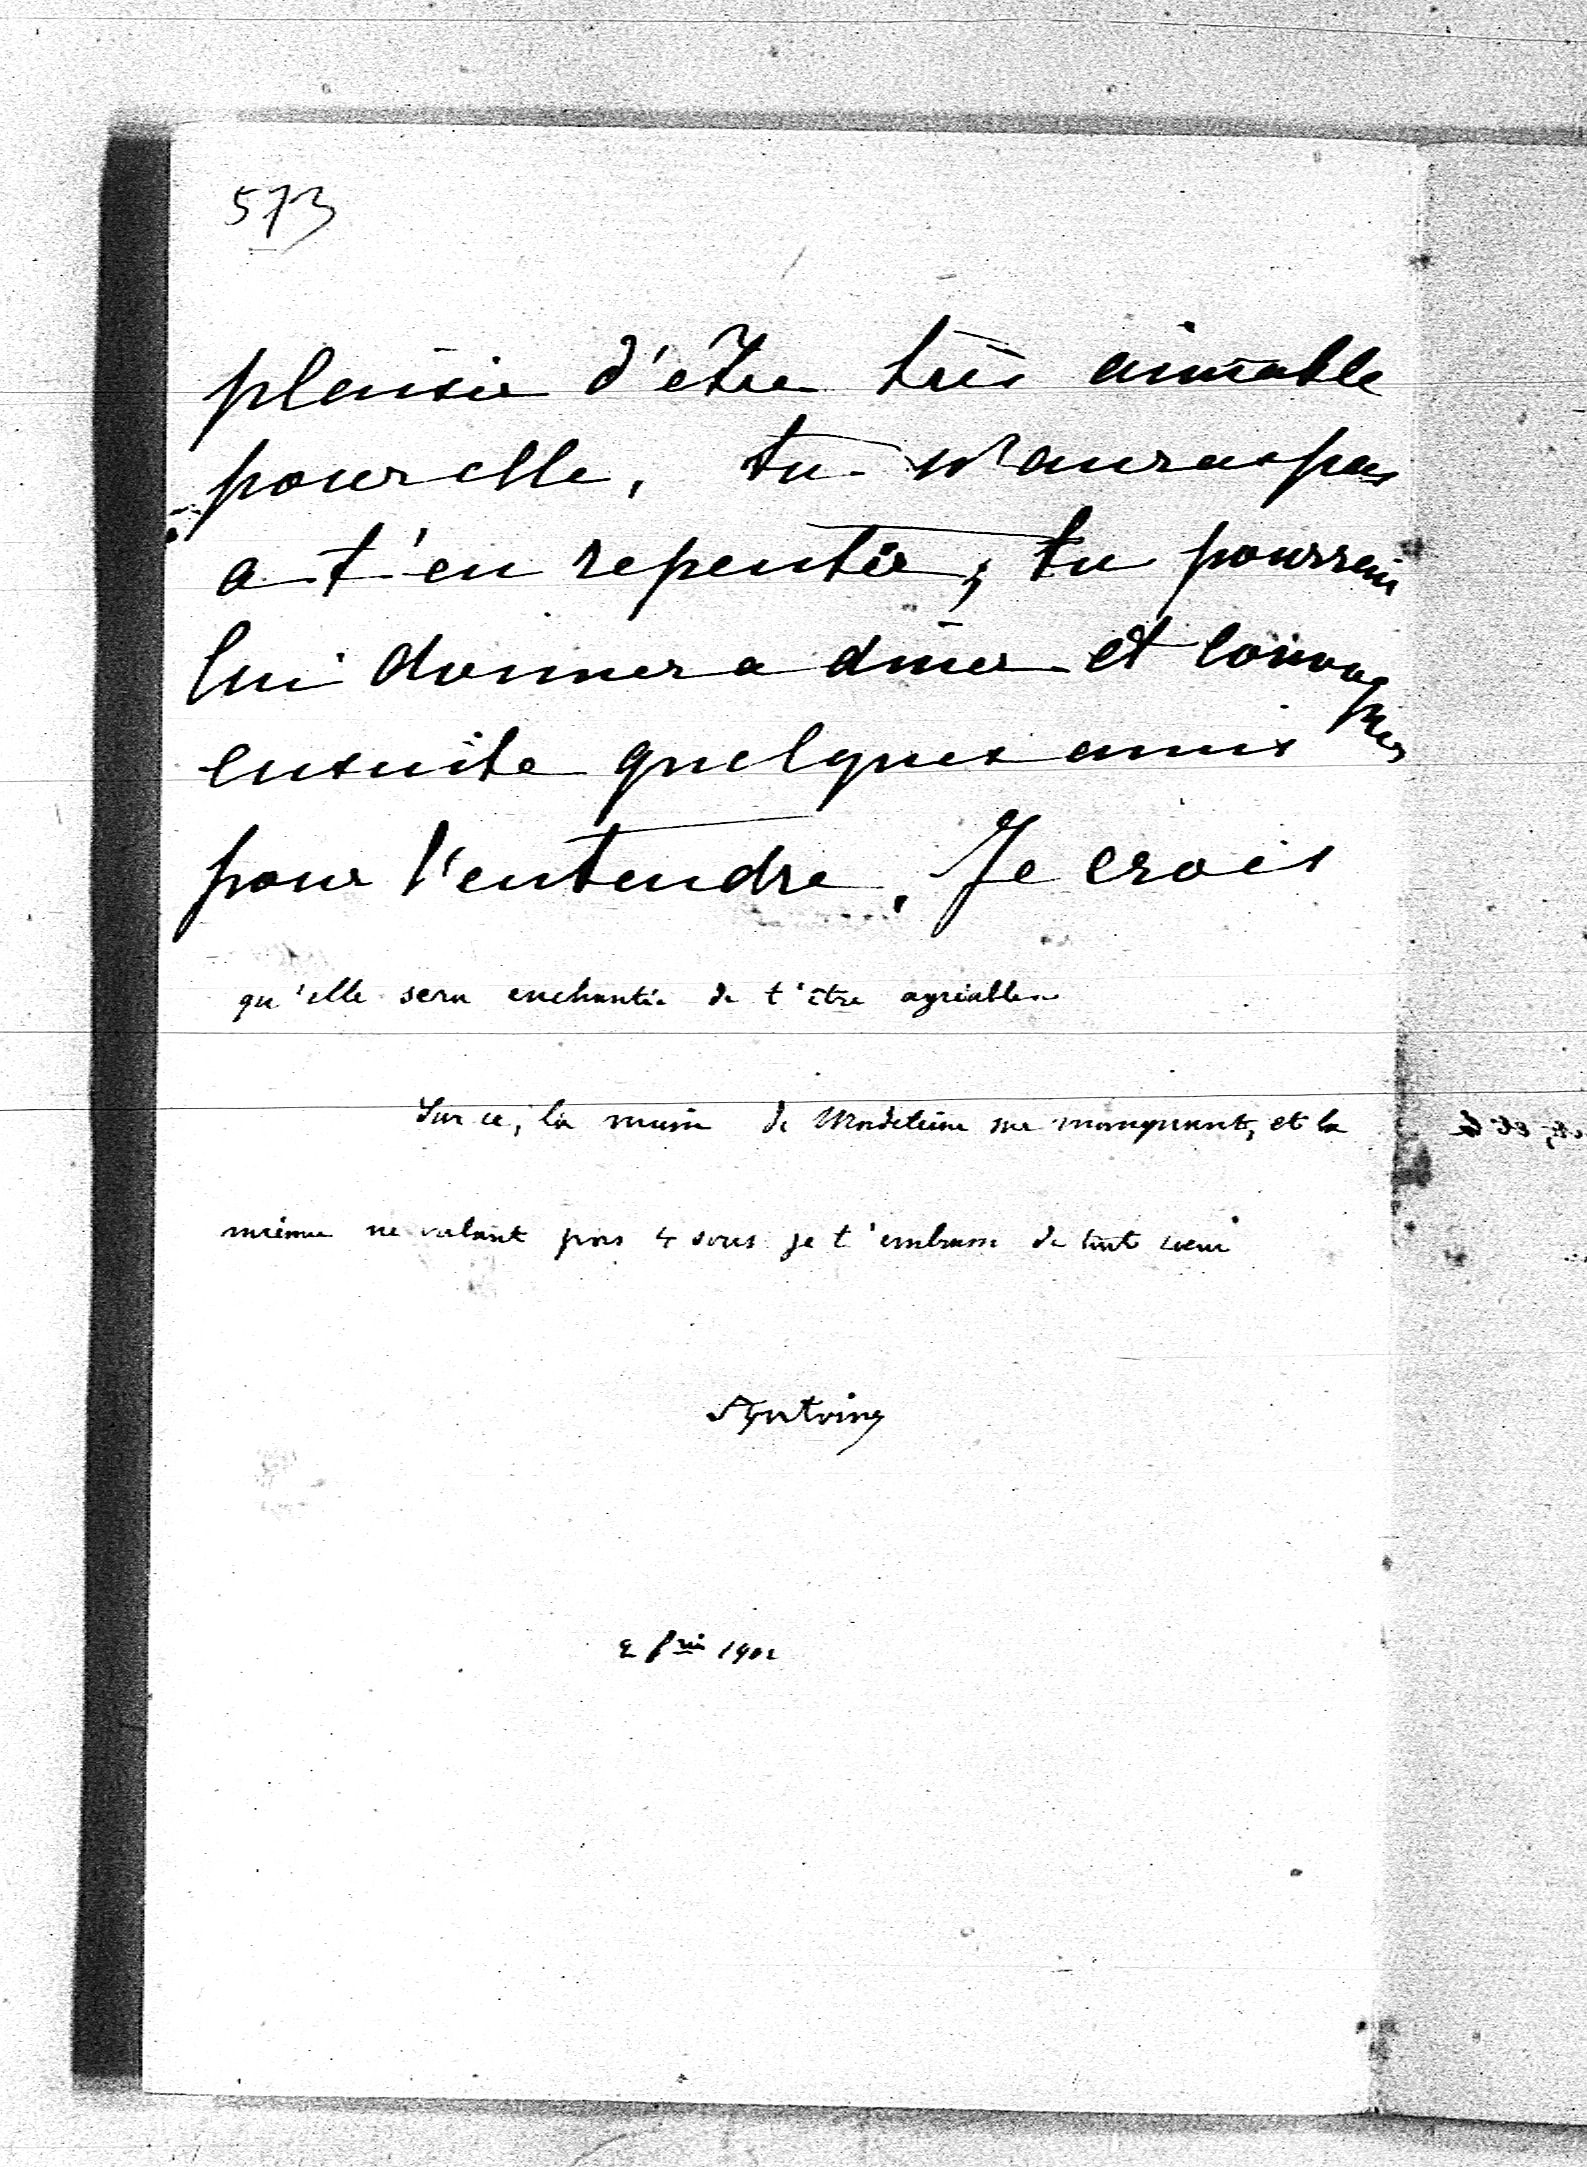 573
plaisir d'être très aimable
pour elle, tu n'auras pas
a t'en repentir; tu pourrais
lui donner a diner et convoquer
ensuite quelques amis
pour l'entendre. Je crois
qu'elle sera enchantée de t'être agréable
Sur ce, la main de Madeleine me manquant, et la
mienne ne valant pas 4 sous je t'embrasse de tout coeur
Antoine
2 1902